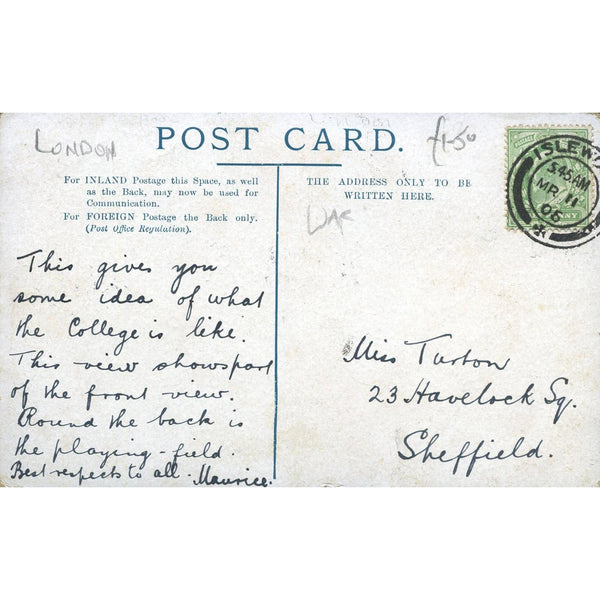 LONDON
POST CARD.
£1-50
For INLAND Postage this Space, as well
as the Back, may now be used for
Communication.
For FOREIGN Postage the Back only.
(Post Office Regulation).
THE ADDRESS ONLY TO BE
WRITTEN HERE.
ISLEW
5.45 AM
MR 11
06
This gives you
some idea of what
the College is like.
This view shows part
of the front view.
Round the back is
the playing-field.
Best respects to all. Maurice.
Miss Turton
23 Havelock Sq.
Sheffield.